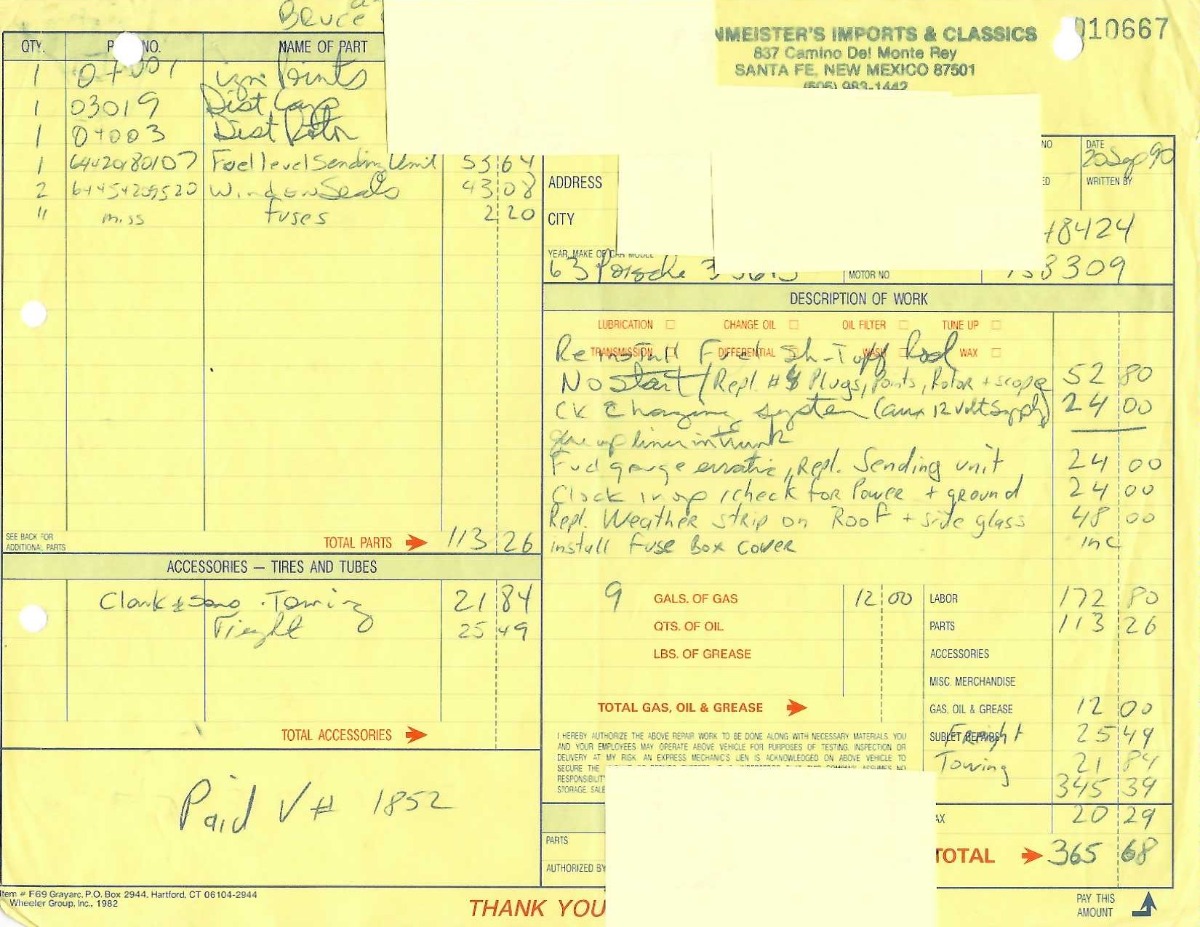 Bruce
NMEISTER'S IMPORTS & CLASSICS
837 Camino Del Monte Rey
SANTA FE, NEW MEXICO 87501
(505) 983-1442
010667
QTY. P NO. NAME OF PART
1 Ign Points
1 03019 Dist Cap
1 04003 Dist Rotor
1 64420180107 Fuel level Sending Unit 53 64
2 64454209520 Window Seals 43 08
11 miss fuses 2 20
SEE BACK FOR ADDITIONAL PARTS
TOTAL PARTS 113 26
ACCESSORIES — TIRES AND TUBES
Clark & Sano Towing 21 84
Freight 25 49
TOTAL ACCESSORIES
Paid V # 1852
Item # F69 Grayarc, P.O. Box 2944, Hartford, CT 06104-2944
Wheeler Group, Inc., 1982
NO DATE
20 Sep 90
ADDRESS ED WRITTEN BY
CITY 48424
YEAR, MAKE OF CAR MODEL
63 Porsche 356B MOTOR NO 3309
DESCRIPTION OF WORK
LUBRICATION CHANGE OIL OIL FILTER TUNE UP
TRANSMISSION DIFFERENTIAL WASH WAX
Reinstall Fuel Sh-Toff Rod
No Start / Repl. # 4 Plugs, Points, Rotor + scope 52 80
CK Charging system (aux 12 Volt Supply) 24 00
glue up liner in trunk
Fuel gauge erratic, Repl. Sending unit 24 00
Clock inop / check for Power + ground 24 00
Repl. Weather strip on Roof + side glass 48 00
install fuse Box cover inc
9 GALS. OF GAS 12 00
QTS. OF OIL
LBS. OF GREASE
TOTAL GAS, OIL & GREASE
LABOR 172 80
PARTS 113 26
ACCESSORIES
MISC. MERCHANDISE
GAS, OIL & GREASE 12 00
SUBLET REPAIRS Freight 25 49
Towing 21 84
345 39
AX 20 29
TOTAL 365 68
I HEREBY AUTHORIZE THE ABOVE REPAIR WORK TO BE DONE ALONG WITH NECESSARY MATERIALS. YOU
AND YOUR EMPLOYEES MAY OPERATE ABOVE VEHICLE FOR PURPOSES OF TESTING, INSPECTION OR
DELIVERY AT MY RISK. AN EXPRESS MECHANIC'S LIEN IS ACKNOWLEDGED ON ABOVE VEHICLE TO
SECURE THE
RESPONSIBILITY
STORAGE, SALE
PARTS
AUTHORIZED BY
THANK YOU
PAY THIS
AMOUNT